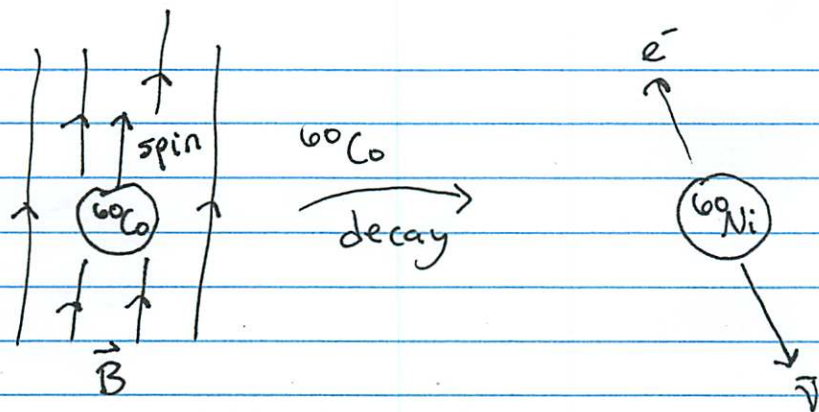 e⁻
spin
⁶⁰Co
⁶⁰Co
decay
⁶⁰Ni
B⃗
ν̄